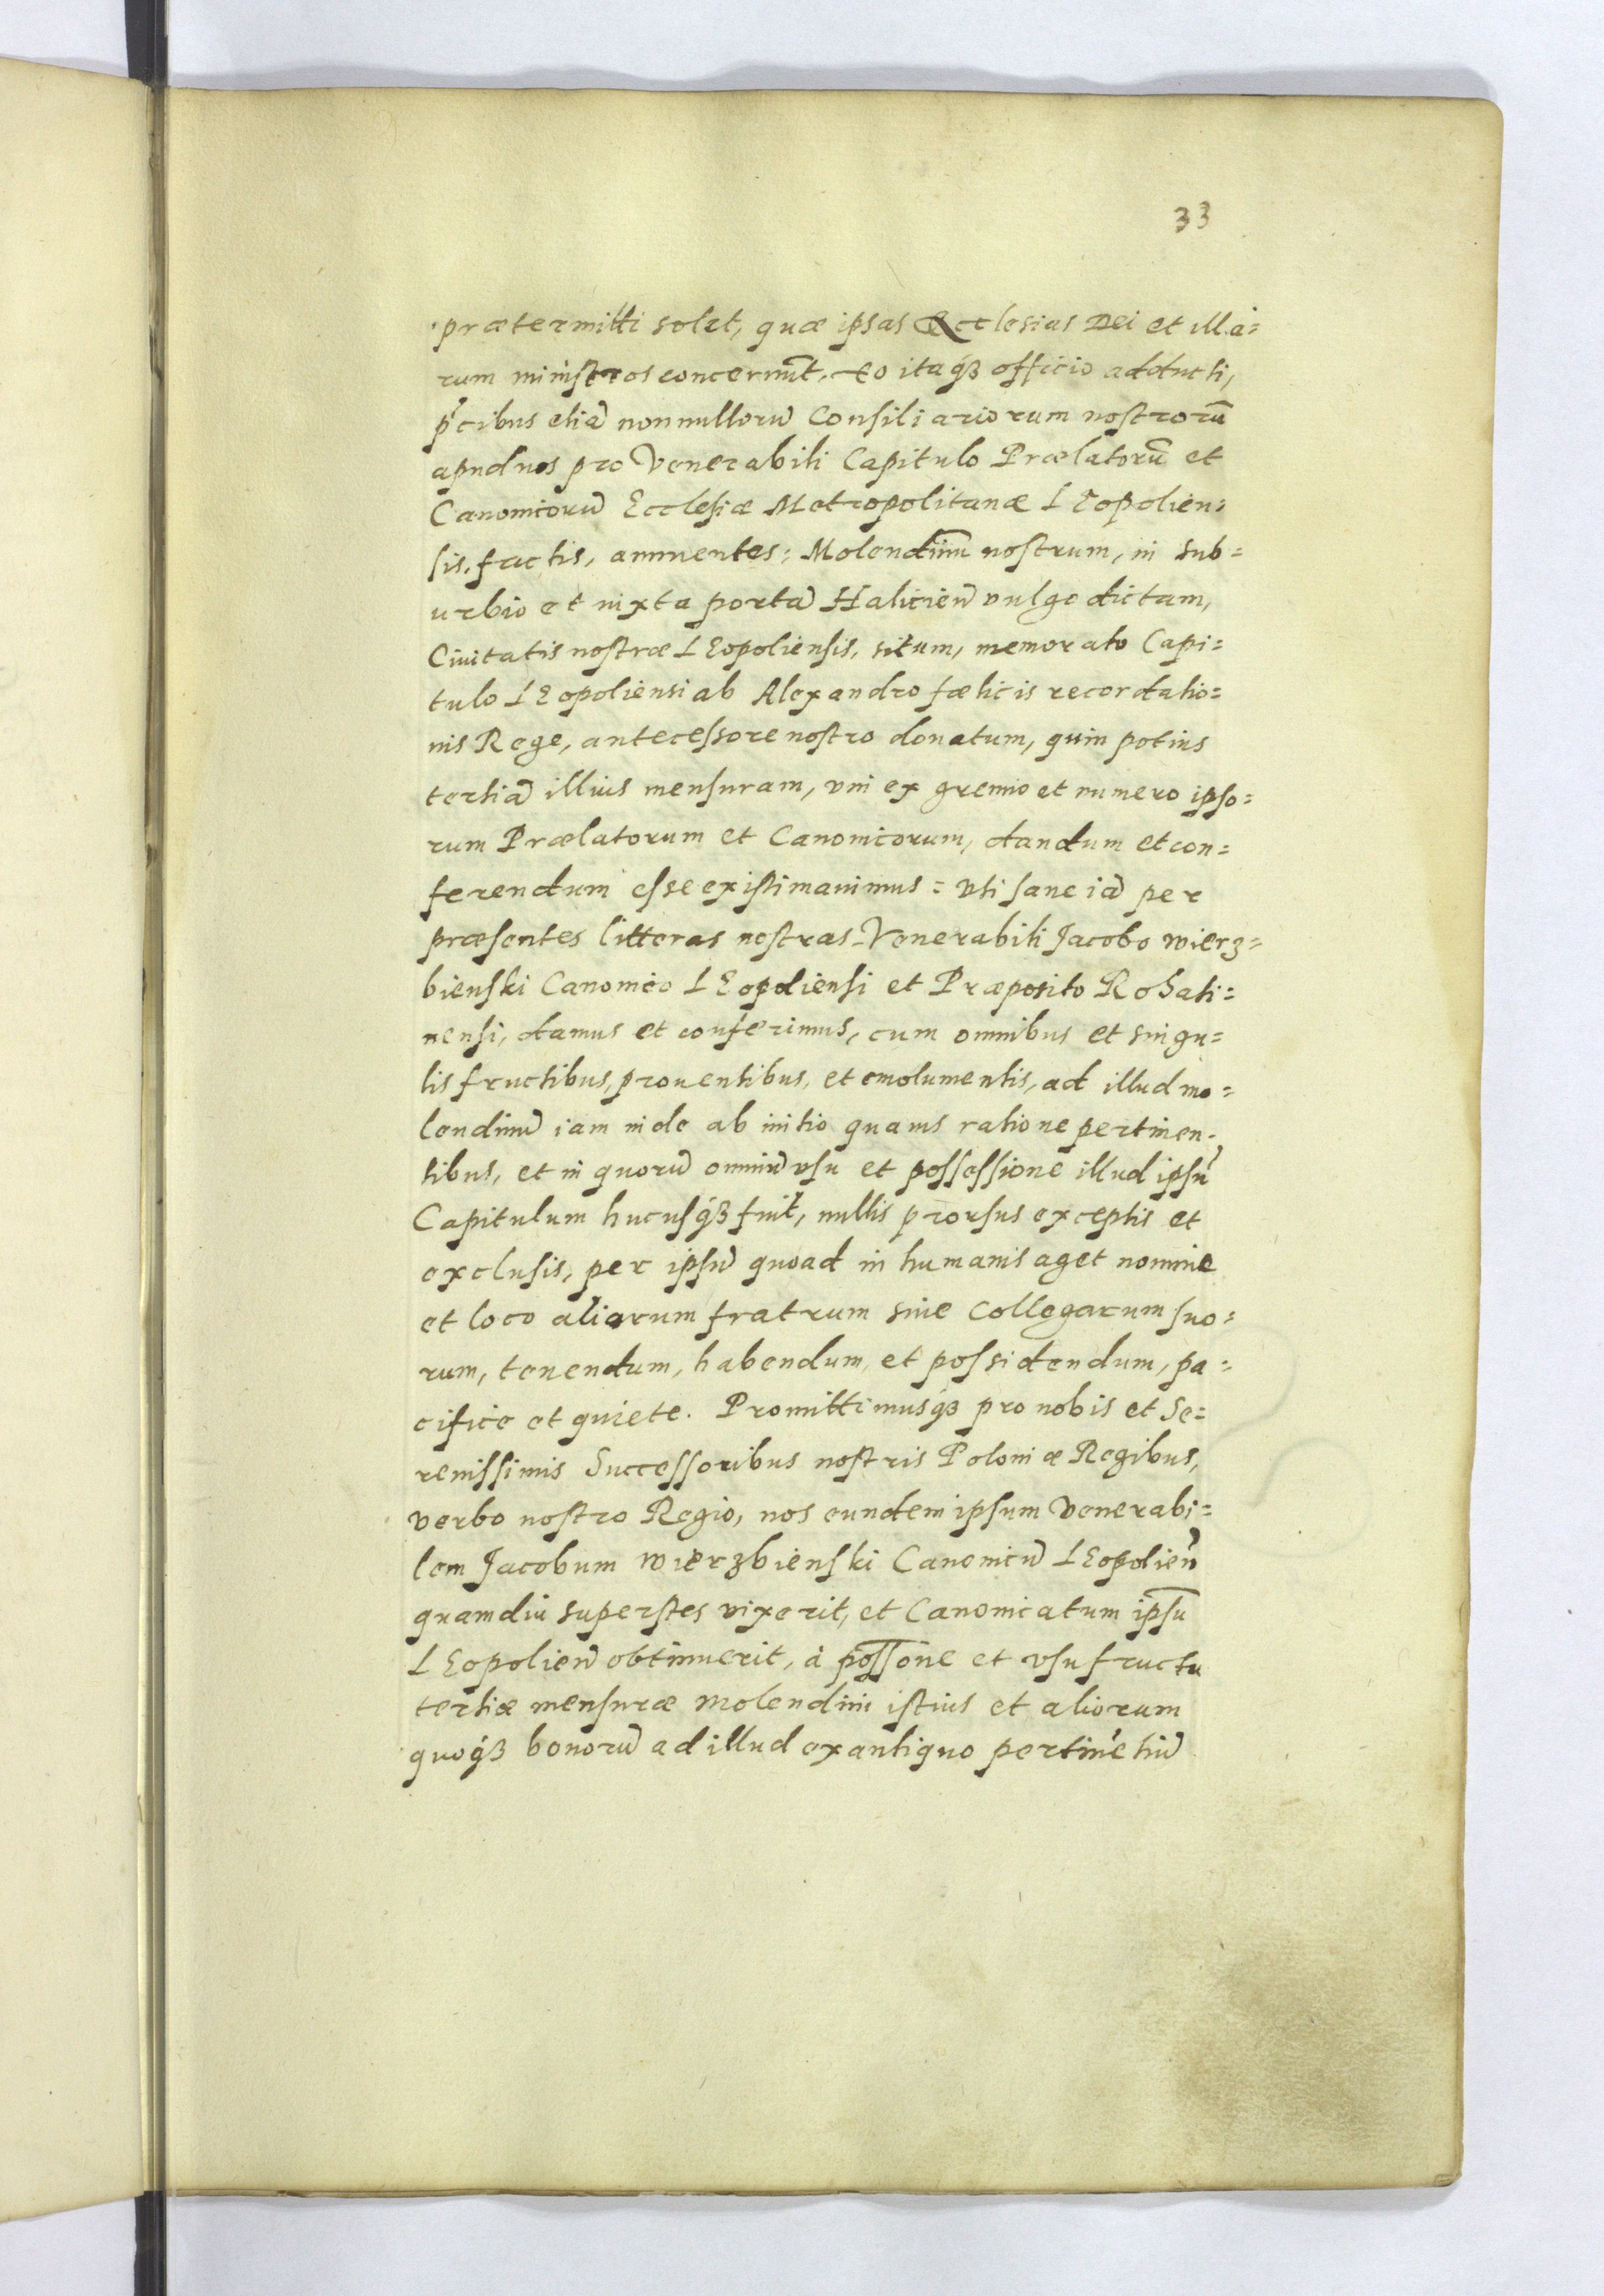 33
prætermitti solet, quæ ipsas Ecclesias Dei et illa=
rum ministros concernūt. eo itaqȝ officio adducti,
p̄cibus etiā nonnullorū Consiliariorum nostrorū
apud nos pro Venerabili Capitulo Prælatorū et
Canonicorū Ecclesiæ Metropolitanæ LEopolien=
sis. factis, annuentes: Molendinū nostrum, in sub=
urbio et iuxta portā Halicień vulgo dictam,
Ciuitatis nostræ LEopoliensis, situm, memorato Capi=
tulo LEopoliensi ab Alexandro fælicis recordatio=
nis Rege, antecessore nostro donatum, quin potius
tertiā illius mensuram, vni ex gremio et numero ipso=
rum Prælatorum et Canonicorum, dandum et con=
ferendum esse existimauimus = vti sane iā per
præsentes litteras nostras Venerabili Jacobo wierz=
bienski Canonico LEopoliensi et Præposito Rohati=
nensi, damus et conferimus, cum omnibus et singu=
lis fructibus, prouentibus, et emolumentis, ad illud mo=
lendinū iam inde ab initio quauis ratione pertinen=
tibus, et in quorū omniū vsu et possessione illud ipsū
Capitulum hucusqȝ fuit, nullis prorsus exceptis et
exclusis, per ipsū quoad in humanis aget nomine
et loco aliorum fratrum siue Collegarum suo=
rum, tenendum, habendum, et possidendum, pa=
cifice et quiete. Promittimusqȝ pro nobis et Se=
renissimis Successoribus nostris Poloniæ Regibus,
verbo nostro Regio, nos eundem ipsum Venerabi=
lem Jacobum wierzbienski Canonicū LEopolień
quamdiu superstes vixerit, et Canonicatum ipsū
LEopolień obtinuerit, à possōne et vsufructu
tertiæ mensuræ molendini istius et aliorum
quoqȝ bonorū ad illud ex antiquo pertinētiū